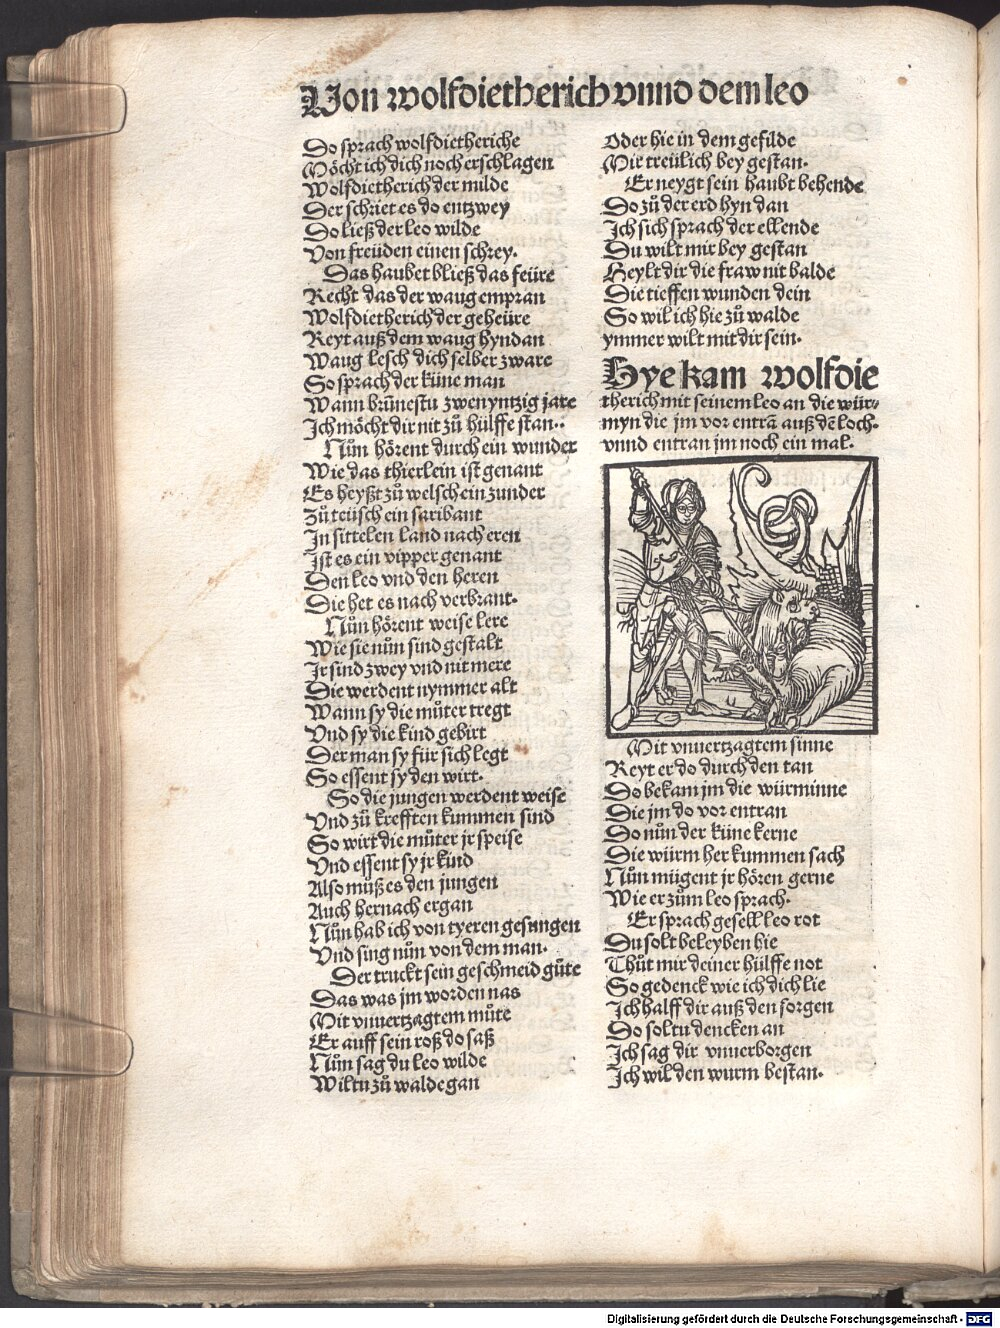 Von wolfdietherich vnnd dem leo
Do sprach wolfdietheriche
Möcht ich dich noch erschlagen
Wolfdietherich der milde
Der schriet es do entzwey
Do ließ der leo wilde
Von freüden einen schrey.
Das haubet bließ das feüre
Recht das der waug empran
Wolfdietherich der geheüre
Reyt auß dem waug hyndan
Waug lesch dich selber zware
So sprach der küne man
Wann brūnestu zwenyntzig jare
Ich möcht dir nit zů hülffe stan..
Nůn hörent durch ein wunder
Wie das thierlein ist genant
Es heyßt zů welsch ein zunder
Zů teüsch ein saribant
In sittelen land nach eren
Ist es ein vipper genant
Den leo vnd den heren
Die het es nach verbrant.
Nůn hörent weise lere
Wie sie nům sind gestalt
Ir sind zwey vnd nit mere
Die werdent nymmer alt
Wann sy die můter tregt
Vnd sy die kind gebirt
Der man sy für sich legt
So essent sy den wirt.
So die jungen werdent weise
Vnd zů krefften kummen sind
So wirt die můter jr speise
Vnd essent sy jr kind
Also můß es den jungen
Auch hernach ergan
Nůn hab ich von tyeren gesungen
Vnd sing nůn von dem man.
Der truckt sein geschmeid gůte
Das was jm worden nas
Mit vnuertzagtem můte
Er auff sein roß do saß
Nůn sag du leo wilde
Wiltu zů walde gan
Oder hie in dem gefilde
Mir treülich bey gestan.
Er neygt sein haubt behende
Do zů der erd hyn dan
Ich sich sprach der ellende
Du wilt mir bey gestan
Heylt dir die fraw nit balde
Die tieffen wunden dein
So wil ich hie zů walde
ymmer wilt mit dir sein.
Hye kam wolfdie
therich mit seinem leo an die wür-
myn die jm vor entrā auß dē loch.
vnnd entran jm noch ein mal.
Mit vnuertzagtem sinne
Reyt er do durch den tan
Do bekam jm die würminne
Die jm do vor entran
Do nůn der küne kerne
Die würm her kummen sach
Nůn mügent jr hören gerne
Wie er zům leo sprach.
Er sprach gesell leo rot
Du solt beleyben hie
Thůt mir deiner hülffe not
So gedenck wie ich dich lie
Ich halff dir auß den sorgen
Do soltu dencken an
Ich sag dir vnuerborgen
Ich wil den wurm bestan.
Digitalisierung gefördert durch die Deutsche Forschungsgemeinschaft - DFG